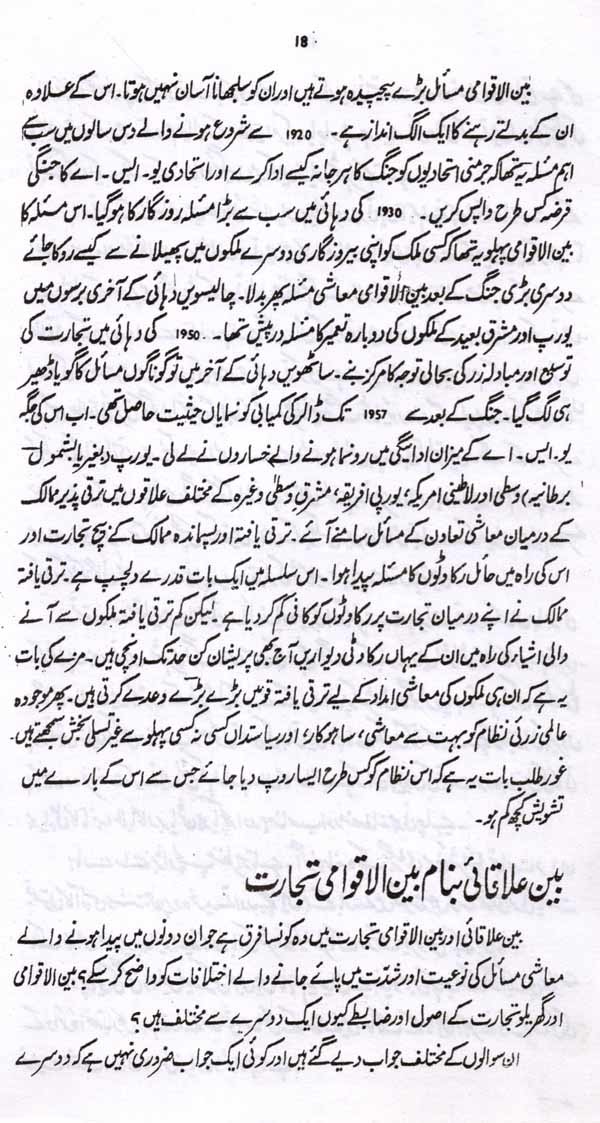 18
بین الاقوامی مسائل بڑے پیچیدہ ہوتے ہیں اور ان کو سلجھانا آسان نہیں ہوتا۔ اس کے علاوہ
ان کے بدلتے رہنے کا ایک الگ انداز ہے۔ 1920 سے شروع ہونے والے دس سالوں میں سب سے
اہم مسئلہ یہ تھا کہ جرمنی اتحادیوں کو جنگ کا ہرجانہ کیسے ادا کرے اور اتحادی یو۔ ایس۔ اے کا جنگی
قرضہ کس طرح واپس کریں۔ 1930 کی دہائی میں سب سے بڑا مسئلہ روزگار کا ہو گیا۔ اس مسئلہ کا
بین الاقوامی پہلو یہ تھا کہ کسی ملک کو اپنی بیروزگاری دوسرے ملکوں میں پھیلانے سے کیسے روکا جائے
دوسری بڑی جنگ کے بعد بین الاقوامی معاشی مسئلہ پھر بدلا۔ چالیسویں دہائی کے آخری برسوں میں
یورپ اور مشرق بعید کے ملکوں کی دوبارہ تعمیر کا مسئلہ درپیش تھا۔ 1950 کی دہائی میں تجارت کی
توسیع اور مبادلہ زر کی بحالی توجہ کا مرکز بنے۔ ساٹھویں دہائی کے آخر میں تو گوناگوں مسائل کا گویا ڈھیر
ہی لگ گیا۔ جنگ کے بعد سے 1957 تک ڈالر کی کمیابی کو نمایاں حیثیت حاصل تھی۔ اب اس کی جگہ
یو۔ ایس۔ اے کے میزان ادائیگی میں رونما ہونے والے خساروں نے لے لی۔ یورپ (بغیر یا بشمول
برطانیہ) وسطی اور لاطینی امریکہ، یورپی افریقہ، مشرق وسطیٰ وغیرہ کے مختلف علاقوں میں ترقی پذیر ممالک
کے درمیان معاشی تعاون کے مسائل سامنے آئے۔ ترقی یافتہ اور پسماندہ ممالک کے بیچ تجارت اور
اس کی راہ میں حائل رکاوٹوں کا مسئلہ پیدا ہوا۔ اس سلسلہ میں ایک بات قدرے دلچسپ ہے۔ ترقی یافتہ
ممالک نے اپنے درمیان تجارت پر رکاوٹوں کو کافی کم کر دیا ہے۔ لیکن کم ترقی یافتہ ملکوں سے آنے
والی اشیاء کی راہ میں ان کے یہاں رکاوٹی دیواریں آج بھی پریشان کن حد تک اونچی ہیں۔ مزے کی بات
یہ ہے کہ ان ہی ملکوں کی معاشی امداد کے لیے ترقی یافتہ قومیں بڑے بڑے وعدے کرتی ہیں۔ پھر موجودہ
عالمی زرئی نظام کو بہت سے معاشی، ساہوکار، اور سیاستداں کسی نہ کسی پہلو سے غیر تسلی بخش سمجھتے ہیں۔
غور طلب بات یہ ہے کہ اس نظام کو کس طرح ایسا روپ دیا جائے جس سے اس کے بارے میں
تشویش کچھ کم ہو۔
بین علاقائی بنام بین الاقوامی تجارت
بین علاقائی اور بین الاقوامی تجارت میں وہ کونسا فرق ہے جو ان دونوں میں پیدا ہونے والے
معاشی مسائل کی نوعیت اور شدّت میں پائے جانے والے اختلافات کو واضح کر سکے؟ بین الاقوامی
اور گھریلو تجارت کے اصول اور ضابطے کیوں ایک دوسرے سے مختلف ہیں؟
ان سوالوں کے مختلف جواب دیے گئے ہیں اور کوئی ایک جواب ضروری نہیں ہے کہ دوسرے